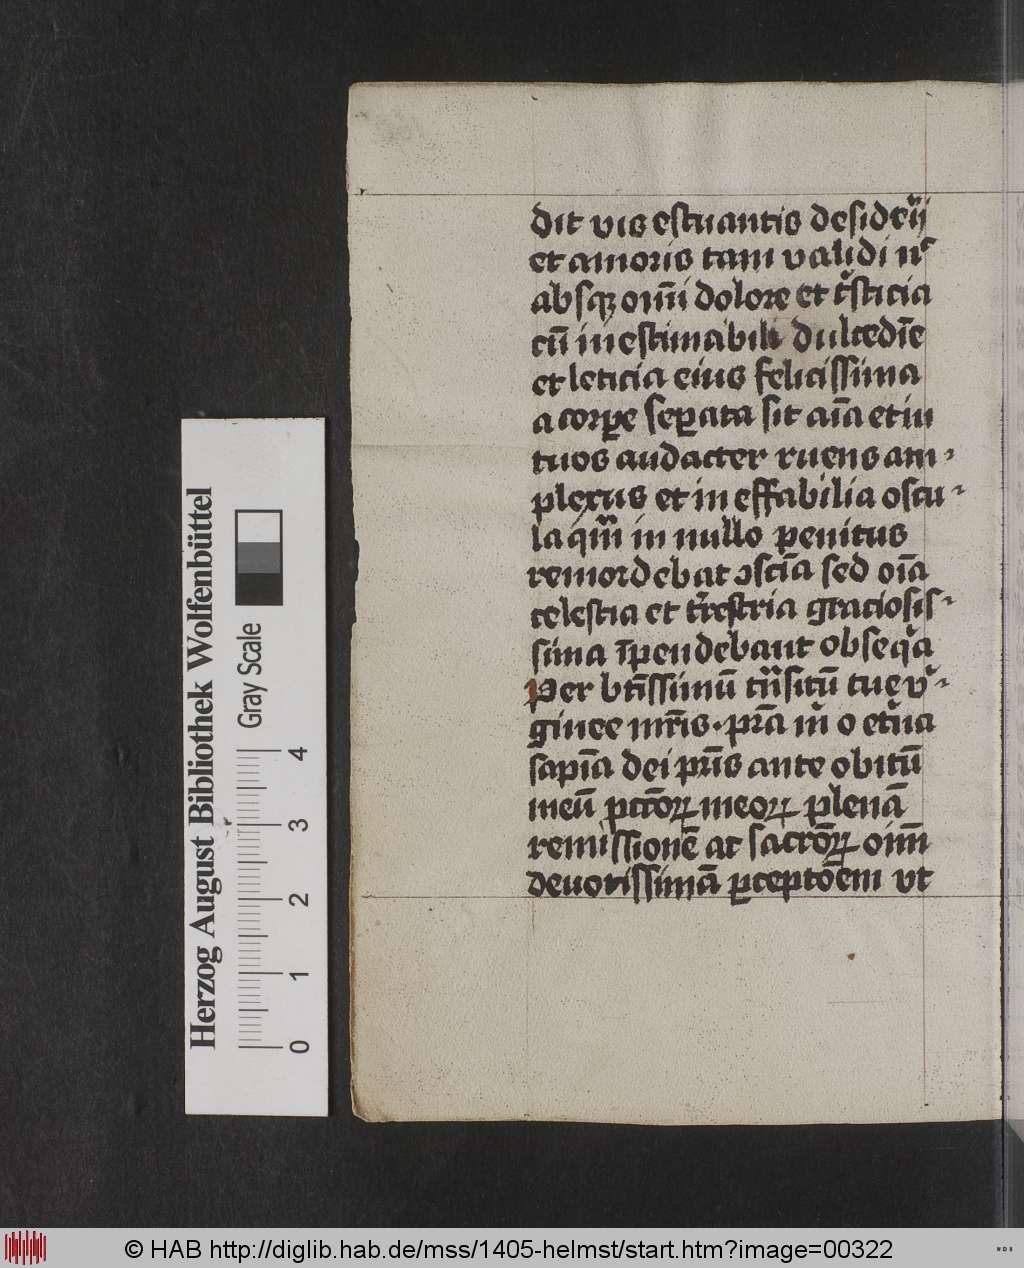 dit vis estuantis desideꝛ̃ij
et amoris tam validi nͨ
absqꝫ om̅i dolore et tͥsticia
cū inestimabili dulcedīe
et leticia eius felicissima
a corpe seꝑata sit aīa et in
tuos audacter ruens am-
plexus et in effabilia oscu-
la qm̅ in nullo penitus
remordebat ꝯscīa sed oīa
celestia et tr̅estria graciosis-
sima īpendebant obseqͥa
Per bt̅issimū tn̅situ̅ tue vͥ-
ginee mr̅is · pr̅a mͥ o etͥna
sapīa dei pr̅is ante obitū
meū pctō̅rꝝ meorꝝ plenā
remissionē ac sacrō̅rꝝ oim̅
deuotissimā ꝑceptōem vt
Herzog August Bibliothek Wolfenbüttel
Gray Scale
0 1 2 3 4
© HAB http://diglib.hab.de/mss/1405-helmst/start.htm?image=00322